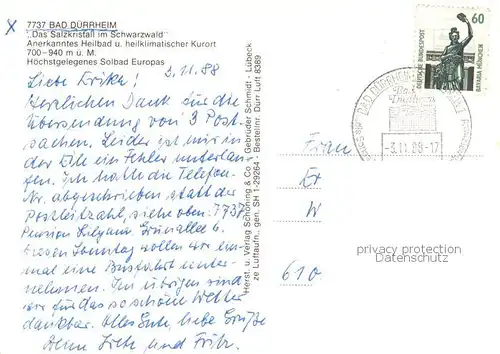 X
7737 BAD DÜRRHEIM
"Das Salzkristall im Schwarzwald"
Anerkanntes Heilbad u. heilklimatischer Kurort
700-940 m ü. M.
Höchstgelegenes Solbad Europas
3.11.88
Liebe Erika!
Herzlichen Dank für die
Übersendung von 3 Post-
sachen. Leider ist mir in
der Eile ein Fehler unterlau-
fen. Ich hatte die Telefon-
Nr. abgeschrieben statt der
Postleitzahl, siehe oben: 7737
Pension 6.
Sonntag wollen wir ein-
mal eine Busfahrt unter-
nehmen. Im übrigen sind
wir für das so schöne Wetter
dankbar. Alles Gute, liebe Grüße
Deine und Fritz.
Herst. u. Verlag Schöning & Co + Gebrüder Schmidt - Lübeck
ze Luftaufn., gen. SH 1-29264 - Bestellnr. Dürr Luft 8389
60
DEUTSCHE BUNDESPOST
BAVARIA MÜNCHEN
BAD DÜRRHEIM
-3.11.88-17
Frau
Er
W
610
privacy protection
Datenschutz